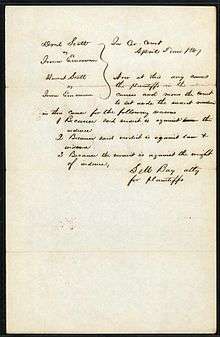 Dred Scott
vs
Irene Emerson
Harriet Scott
vs
Irene Emerson
In Cir Court
April Term 1847
Now at this day comes
the plaintiffs in the
causes and move the court
to set aside the verdict
in this cause for the following reasons
1 Because said verdict is against the
evidence
2 Because said verdict is against law &
evidence
3 Because the verdict is against the weight
of evidence,
S M Bay atty
for plaintiffs